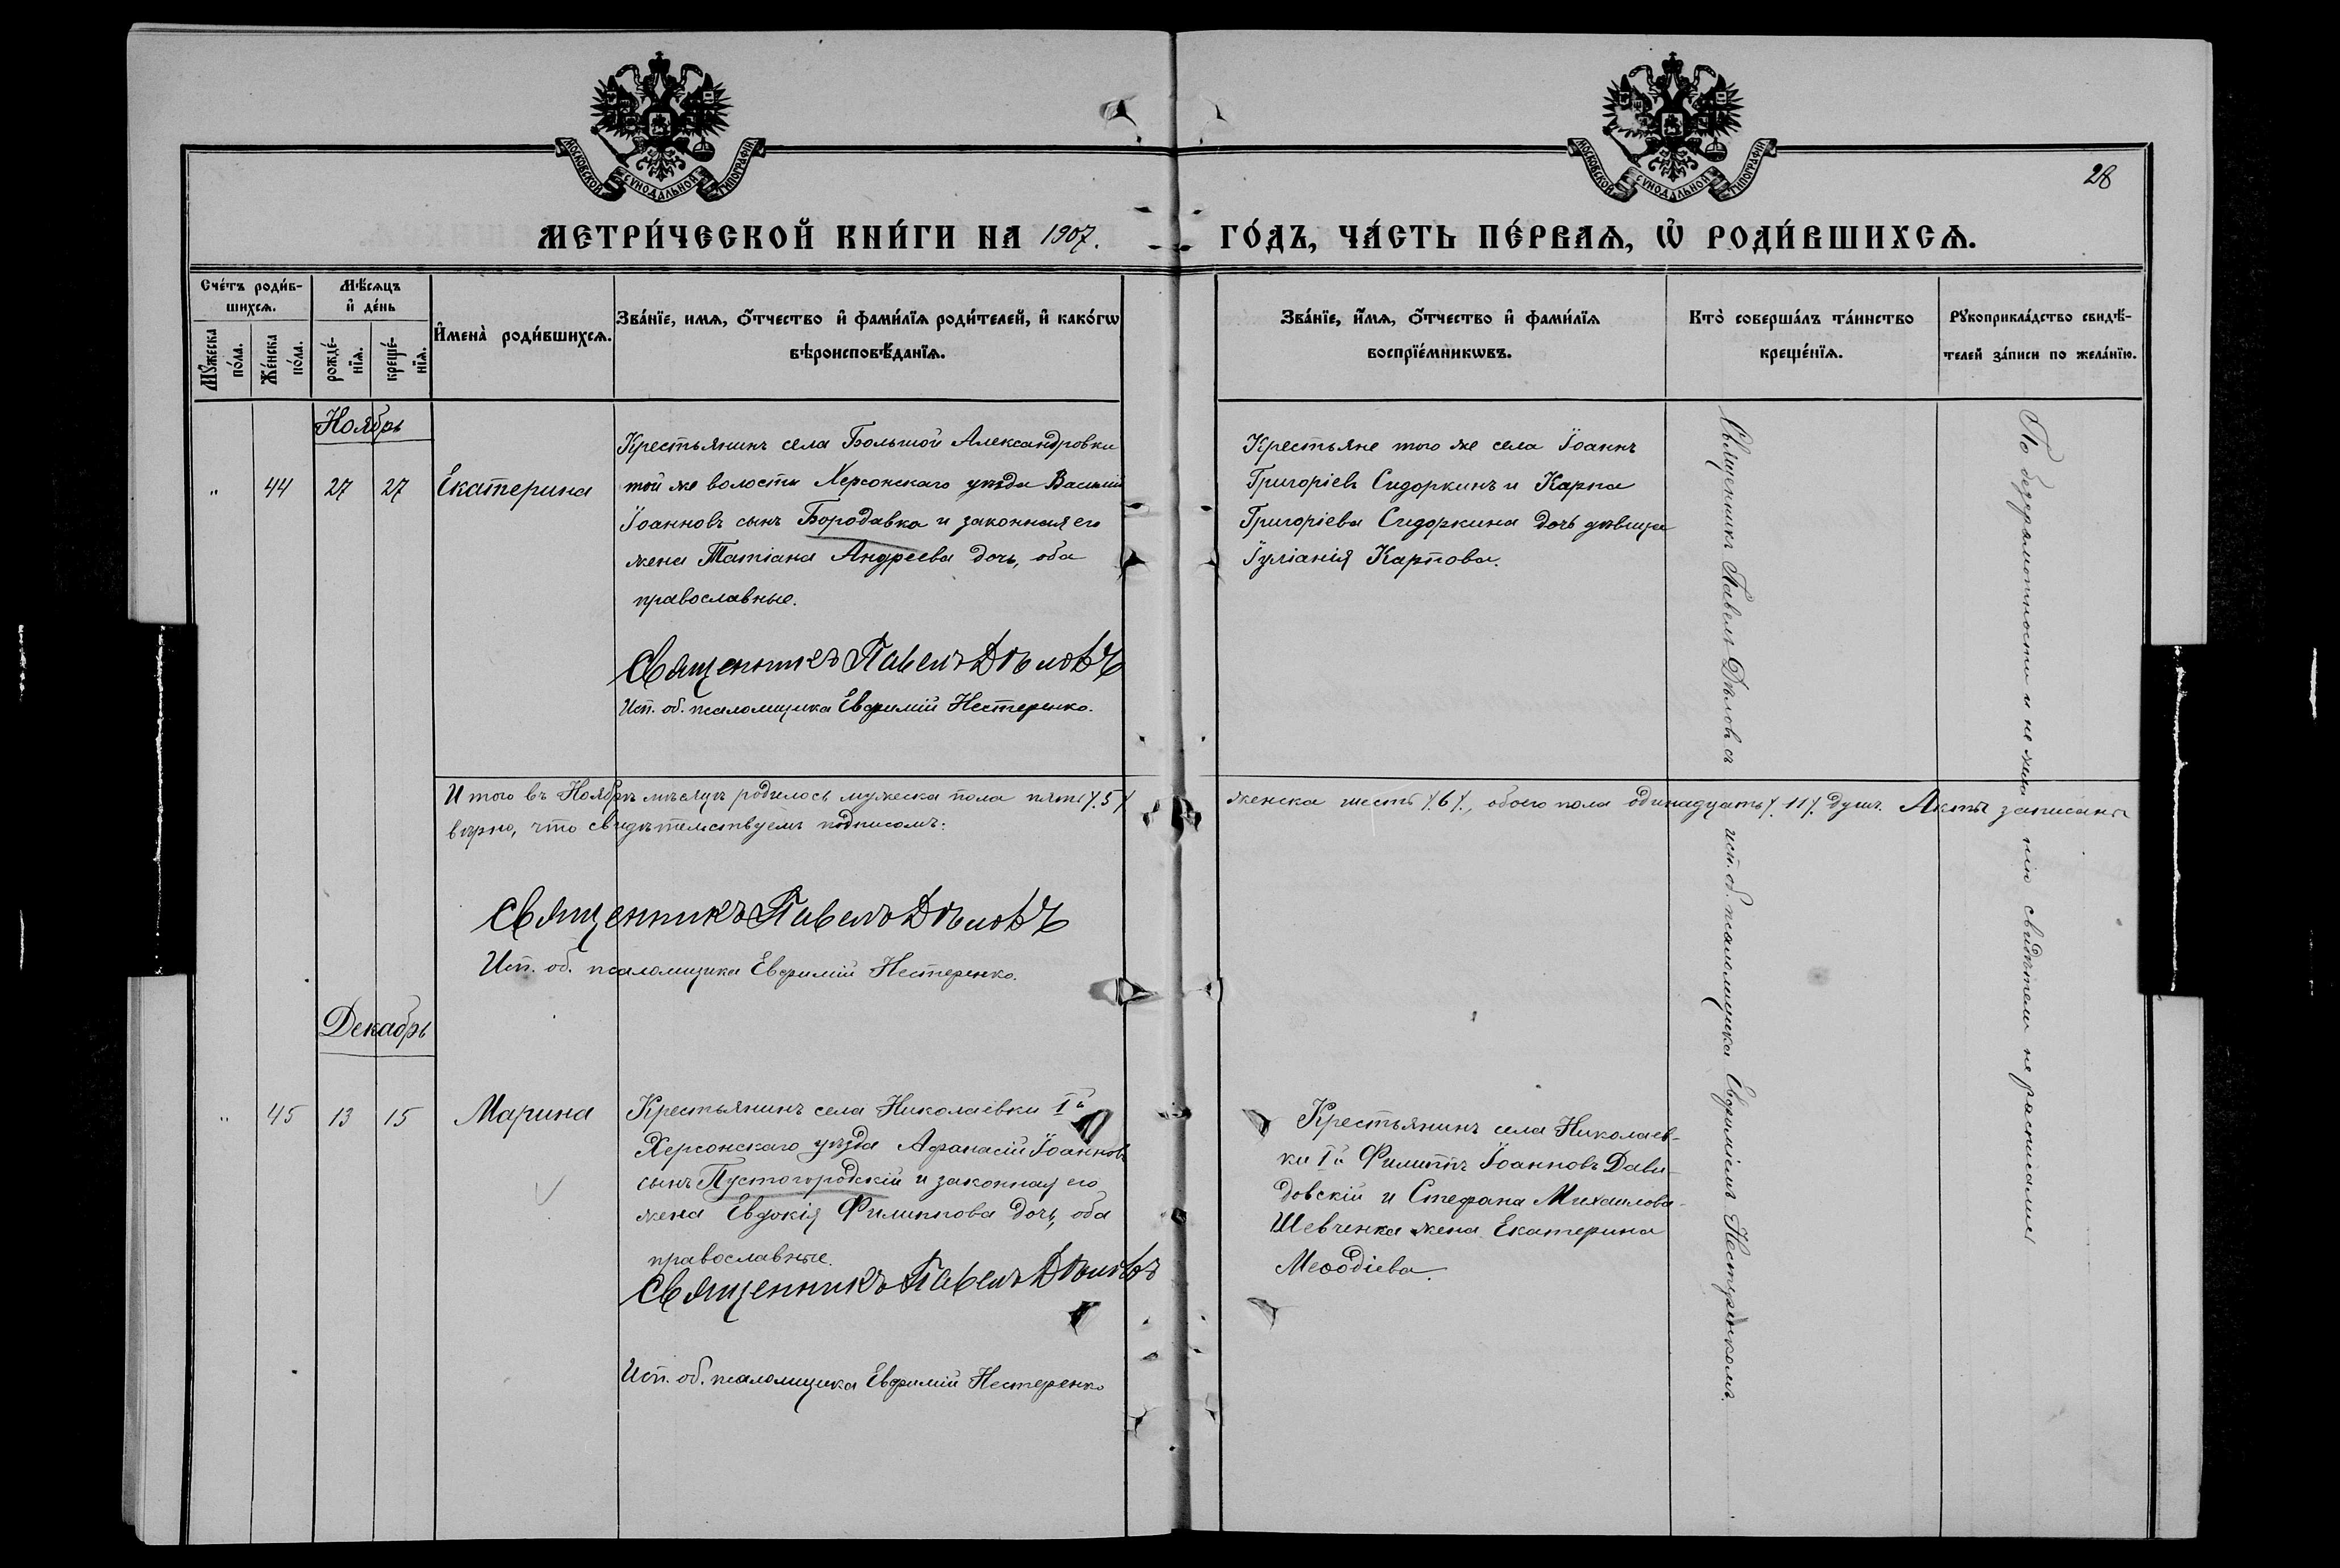 МОСКОВСКОЙ СУНОДАЛЬНОЙ ТИПОГРАФІИ
МОСКОВСКОЙ СУНОДАЛЬНОЙ ТИПОГРАФІИ
28
МЕТРИ́ЧЕСКОЙ КНИ́ГИ НА 1907. ГО́ДЪ, ЧА́СТЬ ПЕ́РВАѦ, Ѡ҆ РОДИ́ВШИХСѦ.
Сче́тъ роди́в-
шихсѧ.
Мꙋ́жеска
по́ла.
Же́нска
по́ла.
Мѣ́сѧцъ
и҆ де́нь
рожде́-
нїѧ.
креще́-
нїѧ.
И҆мена̀ роди́вшихсѧ.
Зва́нїе, имѧ, ѻ҆́тчество и҆ фами́лїѧ роди́телей, и҆ како́гѡ
вѣроисповѣ́данїѧ.
Зва́нїе, и҆́мѧ, ѻ҆́тчество и҆ фами́лїѧ
воспрїе́мникѡвъ.
Кто̀ соверша́лъ та́инство
креще́нїѧ.
Рꙋкоприкла́дство свидѣ́-
телей за́писи по жела́нїю.
Ноябрь
" 44 27 27 Екатерина
Крестьянинъ села Большой Александровки
той же волости Херсонскаго уѣзда Василій
Іоанновъ сынъ Бородавка и законная его
жена Татіана Андреева дочь, оба
православные.
Священникъ Павелъ Дѣловъ
Исп. об. псаломщика Евфимій Нестеренко.
Крестьяне того же села Іоаннъ
Григоріевъ Сидоркинъ и Карпа
Григоріева Сидоркина дочь дѣвица
Іуліанія Карпова.
Священникъ Павелъ Дѣловъ съ исп. об. псаломщика Евфиміемъ Нестеренкомъ.
По безграмотности и не свидѣтели не расписались
Итого въ Ноябрѣ мѣсяцѣ родилось мужеска пола пять /.5./ женска шесть /.6./, обоего пола одинадцать /.11./ душъ. Акты записаны
вѣрно, что свидѣтельствуемъ подписомъ:
Священникъ Павелъ Дѣловъ
Исп. об. псаломщика Евфимій Нестеренко.
Декабрь
" 45 13 15 Марина
Крестьянинъ села Николаевки Iй
Херсонскаго уѣзда Афанасій Іоанновъ
сынъ Пустогородскій и законная его
жена Евдокія Филиппова дочь, оба
православные.
Священникъ Павелъ Дѣловъ
Исп. об. псаломщика Евфимій Нестеренко
Крестьянинъ села Николаев-
ки Iй Филиппъ Іоанновъ Дави-
довскій и Стефана Михаилова
Шевченка жена Екатерина
Меѳодіева.